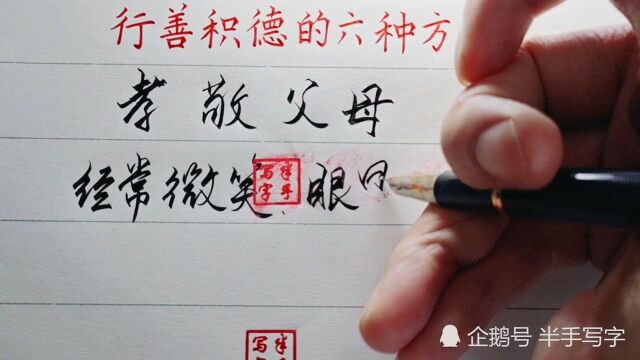 行善积德的六种方
孝敬父母
经常微笑、眼
半手写字
企鹅号 半手写字